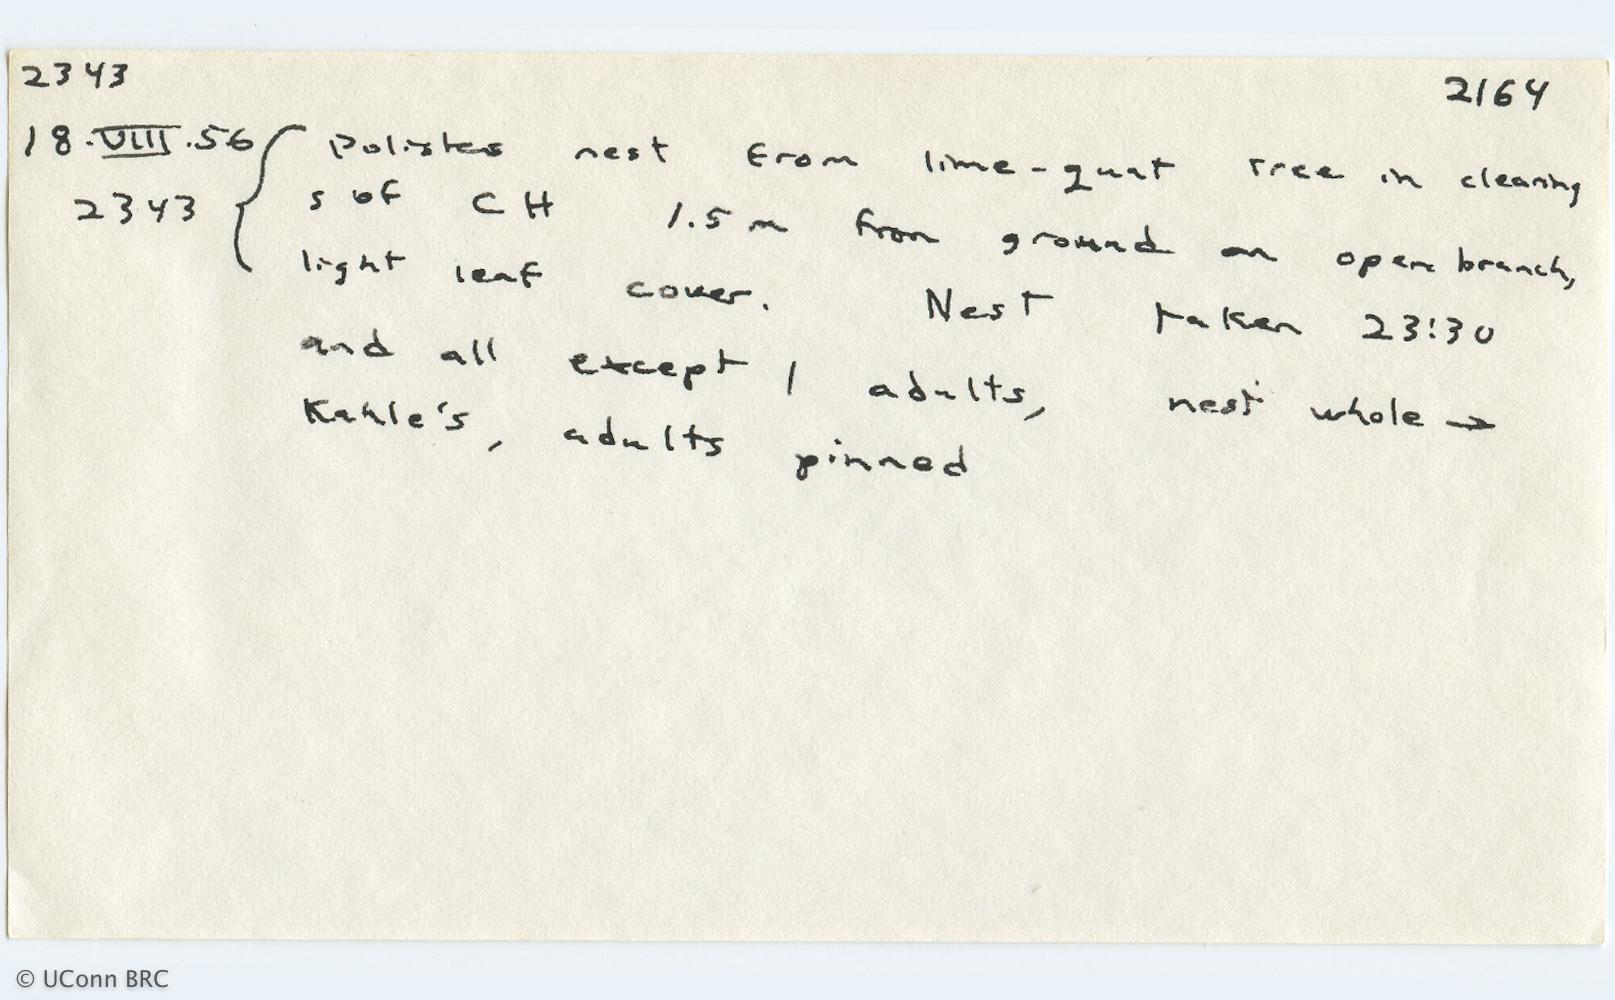 2343 2164
18.VIII.56 Polistes nest from lime-quat tree in clearing
2343 s of CH 1.5 m from ground on open branch,
light leaf cover. Nest taken 23:30
and all except 1 adults, nest whole →
Kahle's, adults pinned
© UConn BRC